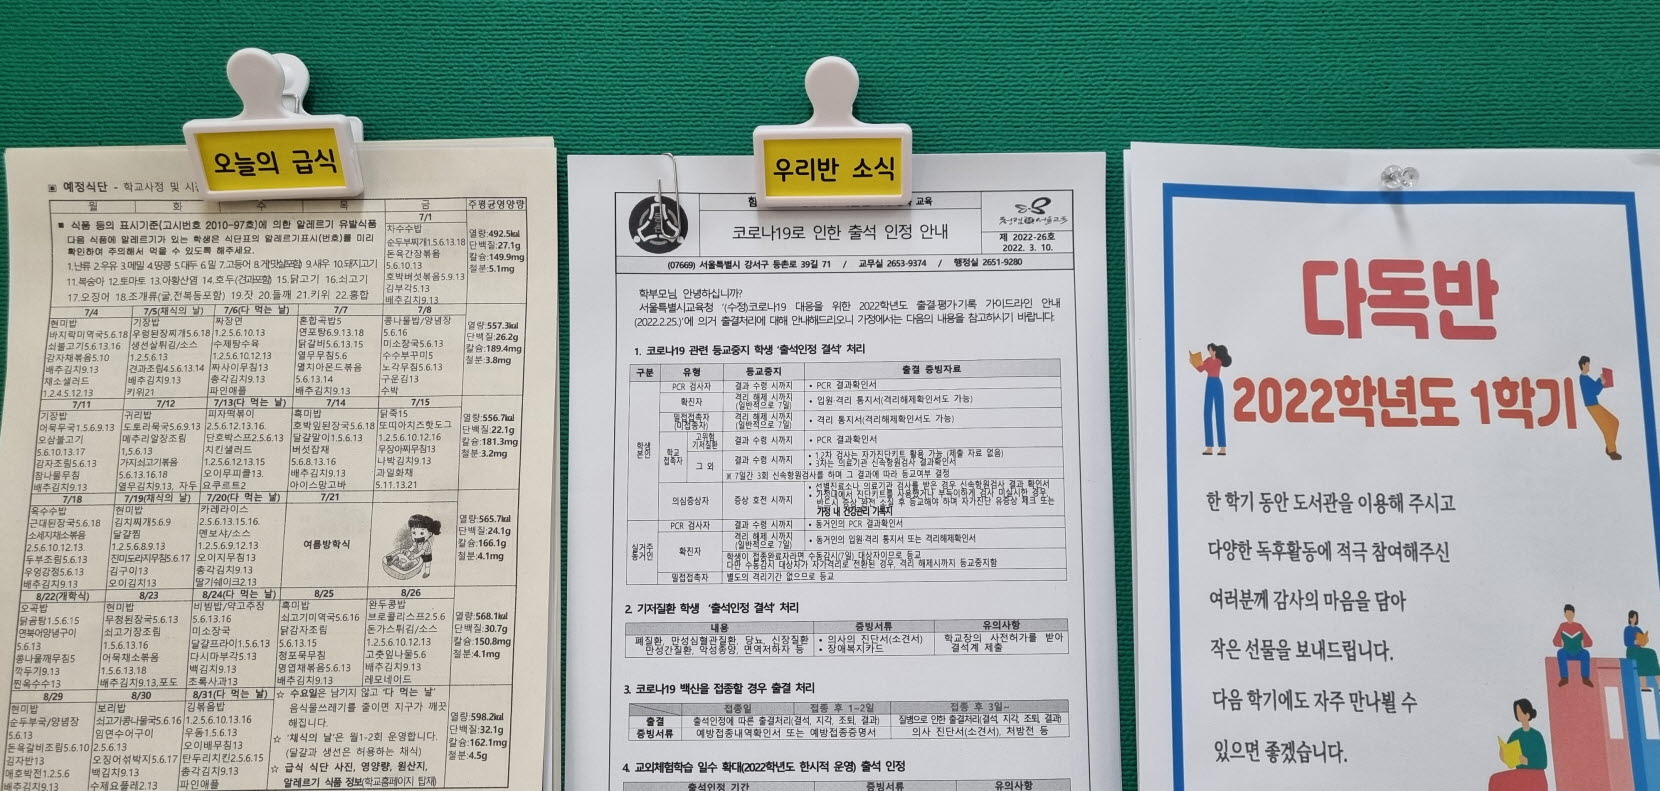 오늘의 급식
▣ 예정식단 - 학교사정 및 시
월 화 수 목 금 주평균영양량
■ 식품 등의 표시기준(고시번호 2010-97호)에 의한 알레르기 유발식품
다음 식품에 알레르기가 있는 학생은 식단표의 알레르기표시(번호)를 미리
확인하여 주의해서 먹을 수 있도록 해주세요.
1.난류 2.우유 3.메밀 4.땅콩 5.대두 6.밀 7.고등어 8.게(맛살포함) 9.새우 10.돼지고기
11.복숭아 12.토마토 13.아황산염 14.호두(견과포함) 15.닭고기 16.쇠고기
17.오징어 18.조개류(굴,전복등포함) 19.잣 20.들깨 21.키위 22.홍합
7/1
차수수밥
순두부찌개1.5.6.13.18
돈육간장볶음
5.6.10.13
호박버섯볶음5.9.13
김부각5.13
배추김치9.13
열량:492.5㎉
단백질:27.1g
칼슘:149.9mg
철분:5.1mg
7/4
현미밥
바지락미역국5.6.18
쇠불고기5.6.13.16
감자채볶음5.10
배추김치9.13
채소샐러드
1.2.4.5.12.13
7/5(채식의 날)
기장밥
우렁된장찌개5.6.18
생선살튀김/소스
1.2.5.6.13
견과조림4.5.6.13.14
배추김치9.13
키위21
7/6(다 먹는 날)
짜장면
1.2.5.6.10.13
수제탕수육
1.2.5.6.10.12.13
짜사이무침13
총각김치9.13
파인애플
7/7
혼합곡밥5
연포탕6.9.13.18
닭갈비5.6.13.15
열무무침5.6
멸치아몬드볶음
5.6.13.14
배추김치9.13
7/8
콩나물밥/양념장
5.6.16
미소장국5.6.13
수수부꾸미5
노각무침5.6.13
구운김13
수박
열량:557.3㎉
단백질:26.2g
칼슘:189.4mg
철분:3.8mg
7/11
기장밥
어묵무국1.5.6.9.13
오삼불고기
5.6.10.13.17
감자조림5.6.13
참나물무침
배추김치9.13
7/12
귀리밥
도토리묵국5.6.9.13
메추리알장조림
1,5.6.13
가지쇠고기볶음
5.6.13.16.18
열무김치9.13, 자두
7/13(다 먹는 날)
피자떡볶이
2.5.6.12.13.16.
단호박스프2.5.6.13
치킨샐러드
1.2.5.6.12.13.15
오이무피클13.
요쿠르트2
7/14
흑미밥
호박잎된장국5.6.18
달걀말이1.5.6.13
버섯잡채
5.6.8.13.16
배추김치9.13
아이스망고바
7/15
닭죽15
또띠아치즈핫도그
1.2.5.6.10.12.16
무장아찌무침13
나박김치9.13
과일화채
5.11.13.21
열량:556.7㎉
단백질:22.1g
칼슘:181.3mg
철분:3.2mg
7/18
옥수수밥
근대된장국5.6.18
소세지채소볶음
2.5.6.10.12.13.
두부조림5.6.13
우엉강정5.6.13
배추김치9.13
7/19(채식의 날)
현미밥
김치찌개5.6.9
달걀찜
1.2.5.6.8.9.13
진미도라지무침5.6.17
김구이13
오이김치13
7/20(다 먹는 날)
카레라이스
2.5.6.13.15.16.
멘보샤/소스
1.2.5.6.9.12.13
오이지무침13
총각김치9.13
딸기쉐이크2.13
7/21
여름방학식
열량:565.7㎉
단백질:24.1g
칼슘:166.1g
철분:4.1mg
8/22(개학식)
오곡밥
닭곰탕1.5.6.15
면북어양념구이
5.6.13
콩나물깨무침5
깍두기9.13
찐옥수수13
8/23
현미밥
무청된장국5.6.13
쇠고기장조림
1.5.6.13.16
어묵채소볶음
1.5.6.13.18
배추김치9.13,포도
8/24(다 먹는 날)
비빔밥/약고추장
5.6.13.16
미소장국
달걀프라이1.5.6.13
다시마부각5.13
백김치9.13
초록사과13
8/25
흑미밥
쇠고기미역국5.6.16
닭감자조림
5.6.13.15
청포묵무침
명엽채볶음5.6.13
배추김치9.13
8/26
완두콩밥
브로콜리스프2.5.6
돈가스튀김/소스
1.2.5.6.10.12.13
고춧잎나물5.6
배추김치9.13
레모네이드
열량:568.1㎉
단백질:30.7g
칼슘:150.8mg
철분:4.1mg
8/29
현미밥
순두부국/양념장
5.6.13
돈육갈비조림5.6.10
김자반13
애호박전1.2.5.6
배추김치9.13
8/30
보리밥
쇠고기콩나물국5.6.16
임연수어구이
2.5.6.13
오징어섞박지5.6.17
백김치9.13
수제요플레2.13
8/31(다 먹는 날)
김볶음밥
1.2.5.6.10.13.16
우동1.5.6.13
오이배무침13
탄두리치킨2.5.6.15
총각김치9.13
파인애플
☆ 수요일은 남기지 않고 '다 먹는 날'
음식물쓰레기를 줄이면 지구가 깨끗
해집니다.
☆ '채식의 날'은 월1-2회 운영합니다.
(달걀과 생선은 허용하는 채식)
☆ 급식 식단 사진, 영양량, 원산지,
알레르기 식품 정보(학교홈페이지 탑재)
열량:598.2㎉
단백질:32.1g
칼슘:162.1mg
철분:4.5g
우리반 소식
교육
코로나19로 인한 출석 인정 안내
제 2022-26호
2022. 3. 10.
(07669) 서울특별시 강서구 등촌로 39길 71 / 교무실 2653-9374 / 행정실 2651-9280
학부모님, 안녕하십니까?
서울특별시교육청 '(수정)코로나19 대응을 위한 2022학년도 출결·평가·기록 가이드라인 안내
(2022.2.25.)'에 의거 출결처리에 대해 안내해드리오니 가정에서는 다음의 내용을 참고하시기 바랍니다.
1. 코로나19 관련 등교중지 학생 '출석인정 결석' 처리
구분 유형 등교중지 출결 증빙자료
학생 본인
PCR 검사자 결과 수령 시까지 • PCR 결과확인서
확진자 격리 해제 시까지 (일반적으로 7일) • 입원·격리 통지서(격리해제확인서도 가능)
밀접접촉자 (미접종자) 격리 해제 시까지 (일반적으로 7일) • 격리 통지서(격리해제확인서도 가능)
학교 접촉자 고위험 기저질환 결과 수령 시까지 • PCR 결과확인서
그 외 결과 수령 시까지 • 1,2차 검사는 자가진단키트 활용 가능 (제출 자료 없음)
• 3차는 의료기관 신속항원검사 결과확인서
※ 7일간 3회 신속항원검사를 하며 그 결과에 따라 등교여부 결정
의심증상자 증상 호전 시까지 • 선별진료소나 의료기관 검사를 받은 경우 신속항원검사 결과 확인서
• 가정내에서 진단키트를 사용했거나 부득이하게 검사 미실시한 경우,
반드시 증상 완전 소실 후 등교해야 하며 자가진단 유증상 체크 또는
가정 내 건강관리 기록지
실거주 동거인
PCR 검사자 결과 수령 시까지 • 동거인의 PCR 결과확인서
확진자 격리 해제 시까지 (일반적으로 7일) • 동거인의 입원·격리 통지서 또는 격리해제확인서
학생이 접종완료자라면 수동감시(7일) 대상자이므로 등교
다만 수동감시 대상자가 자가격리로 전환된 경우, 격리 해제시까지 등교중지함
밀접접촉자 별도의 격리기간 없으므로 등교
2. 기저질환 학생 '출석인정 결석' 처리
내용 증빙서류 유의사항
폐질환, 만성심혈관질환, 당뇨, 신장질환 • 의사의 진단서(소견서) 학교장의 사전허가를 받아
만성간질환, 악성종양, 면역저하자 등 • 장애복지카드 결석계 제출
3. 코로나19 백신을 접종할 경우 출결 처리
접종일 접종 후 1~2일 접종 후 3일~
출결 출석인정에 따른 출결처리(결석, 지각, 조퇴, 결과) 질병으로 인한 출결처리(결석, 지각, 조퇴, 결과)
증빙서류 예방접종내역확인서 또는 예방접종증명서 의사 진단서(소견서), 처방전 등
4. 교외체험학습 일수 확대(2022학년도 한시적 운영) 출석 인정
출석인정 기간 증빙서류 유의사항
다독반
2022학년도 1학기
한 학기 동안 도서관을 이용해 주시고
다양한 독후활동에 적극 참여해주신
여러분께 감사의 마음을 담아
작은 선물을 보내드립니다.
다음 학기에도 자주 만나뵐 수
있으면 좋겠습니다.